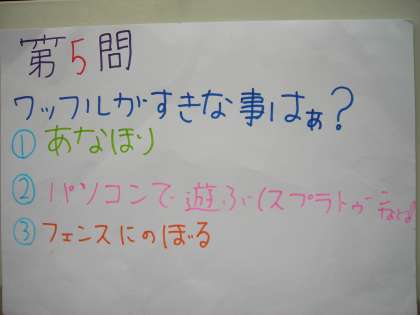 第5問
ワッフルがすきな事はぁ?
① あなほり
② パソコンで遊ぶ(スプラトゥーンなど)
③ フェンスにのぼる